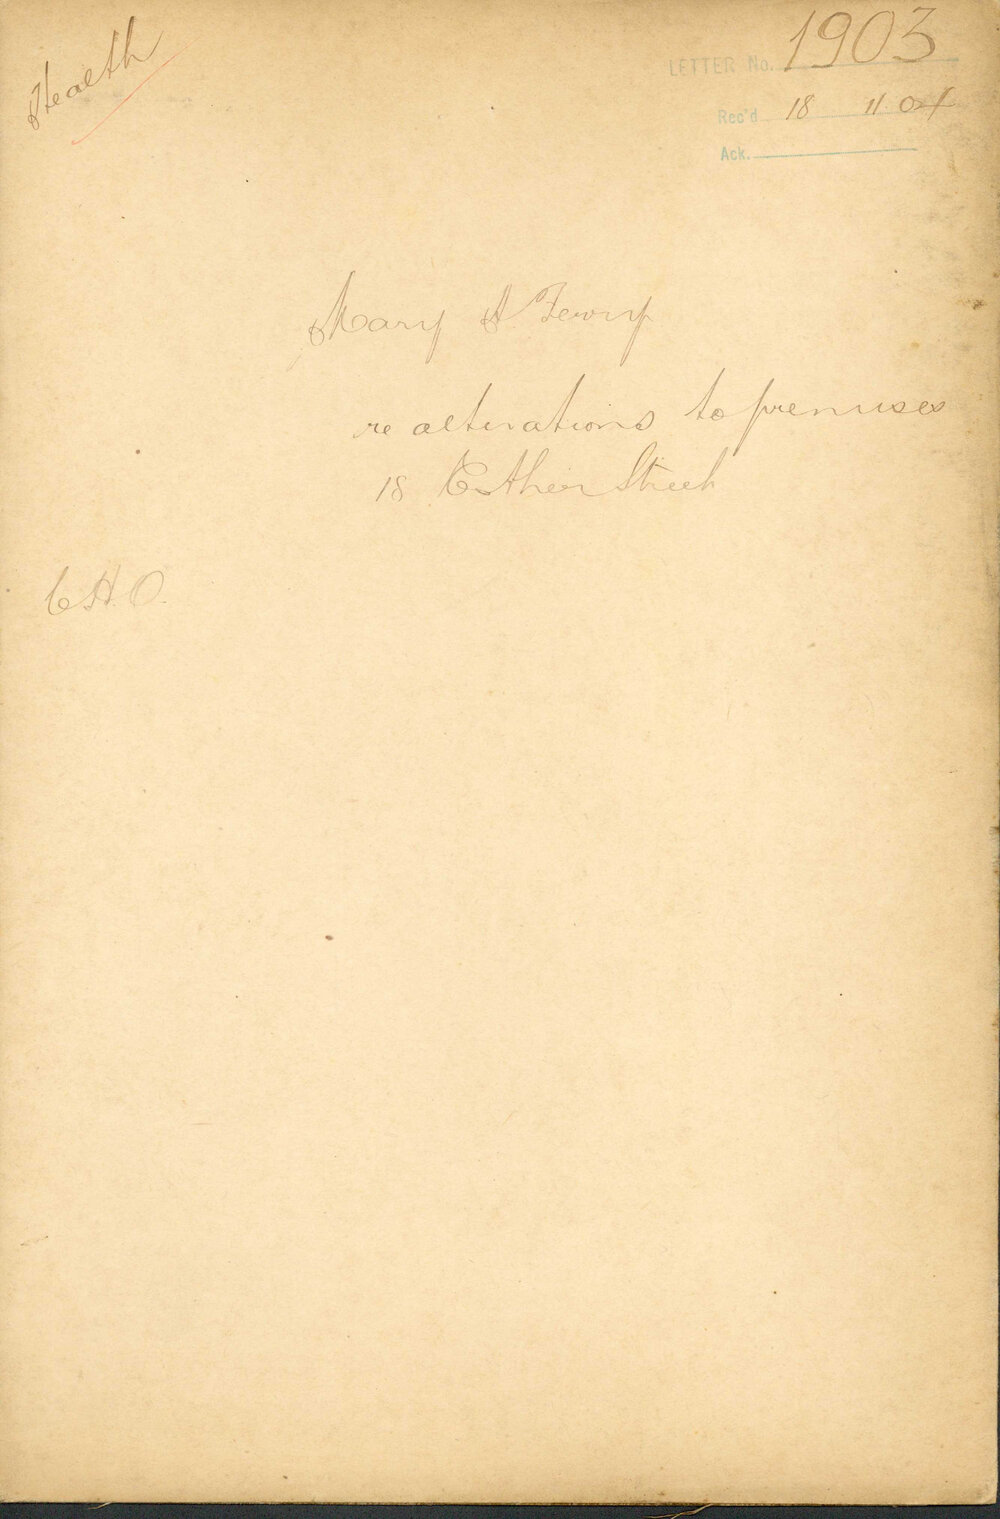 Health
LETTER No. 1903
Rec'd 18 11.04
Ack.
Mary A. Ferry
re alterations to premises
18 Esther Street
C.H.O.